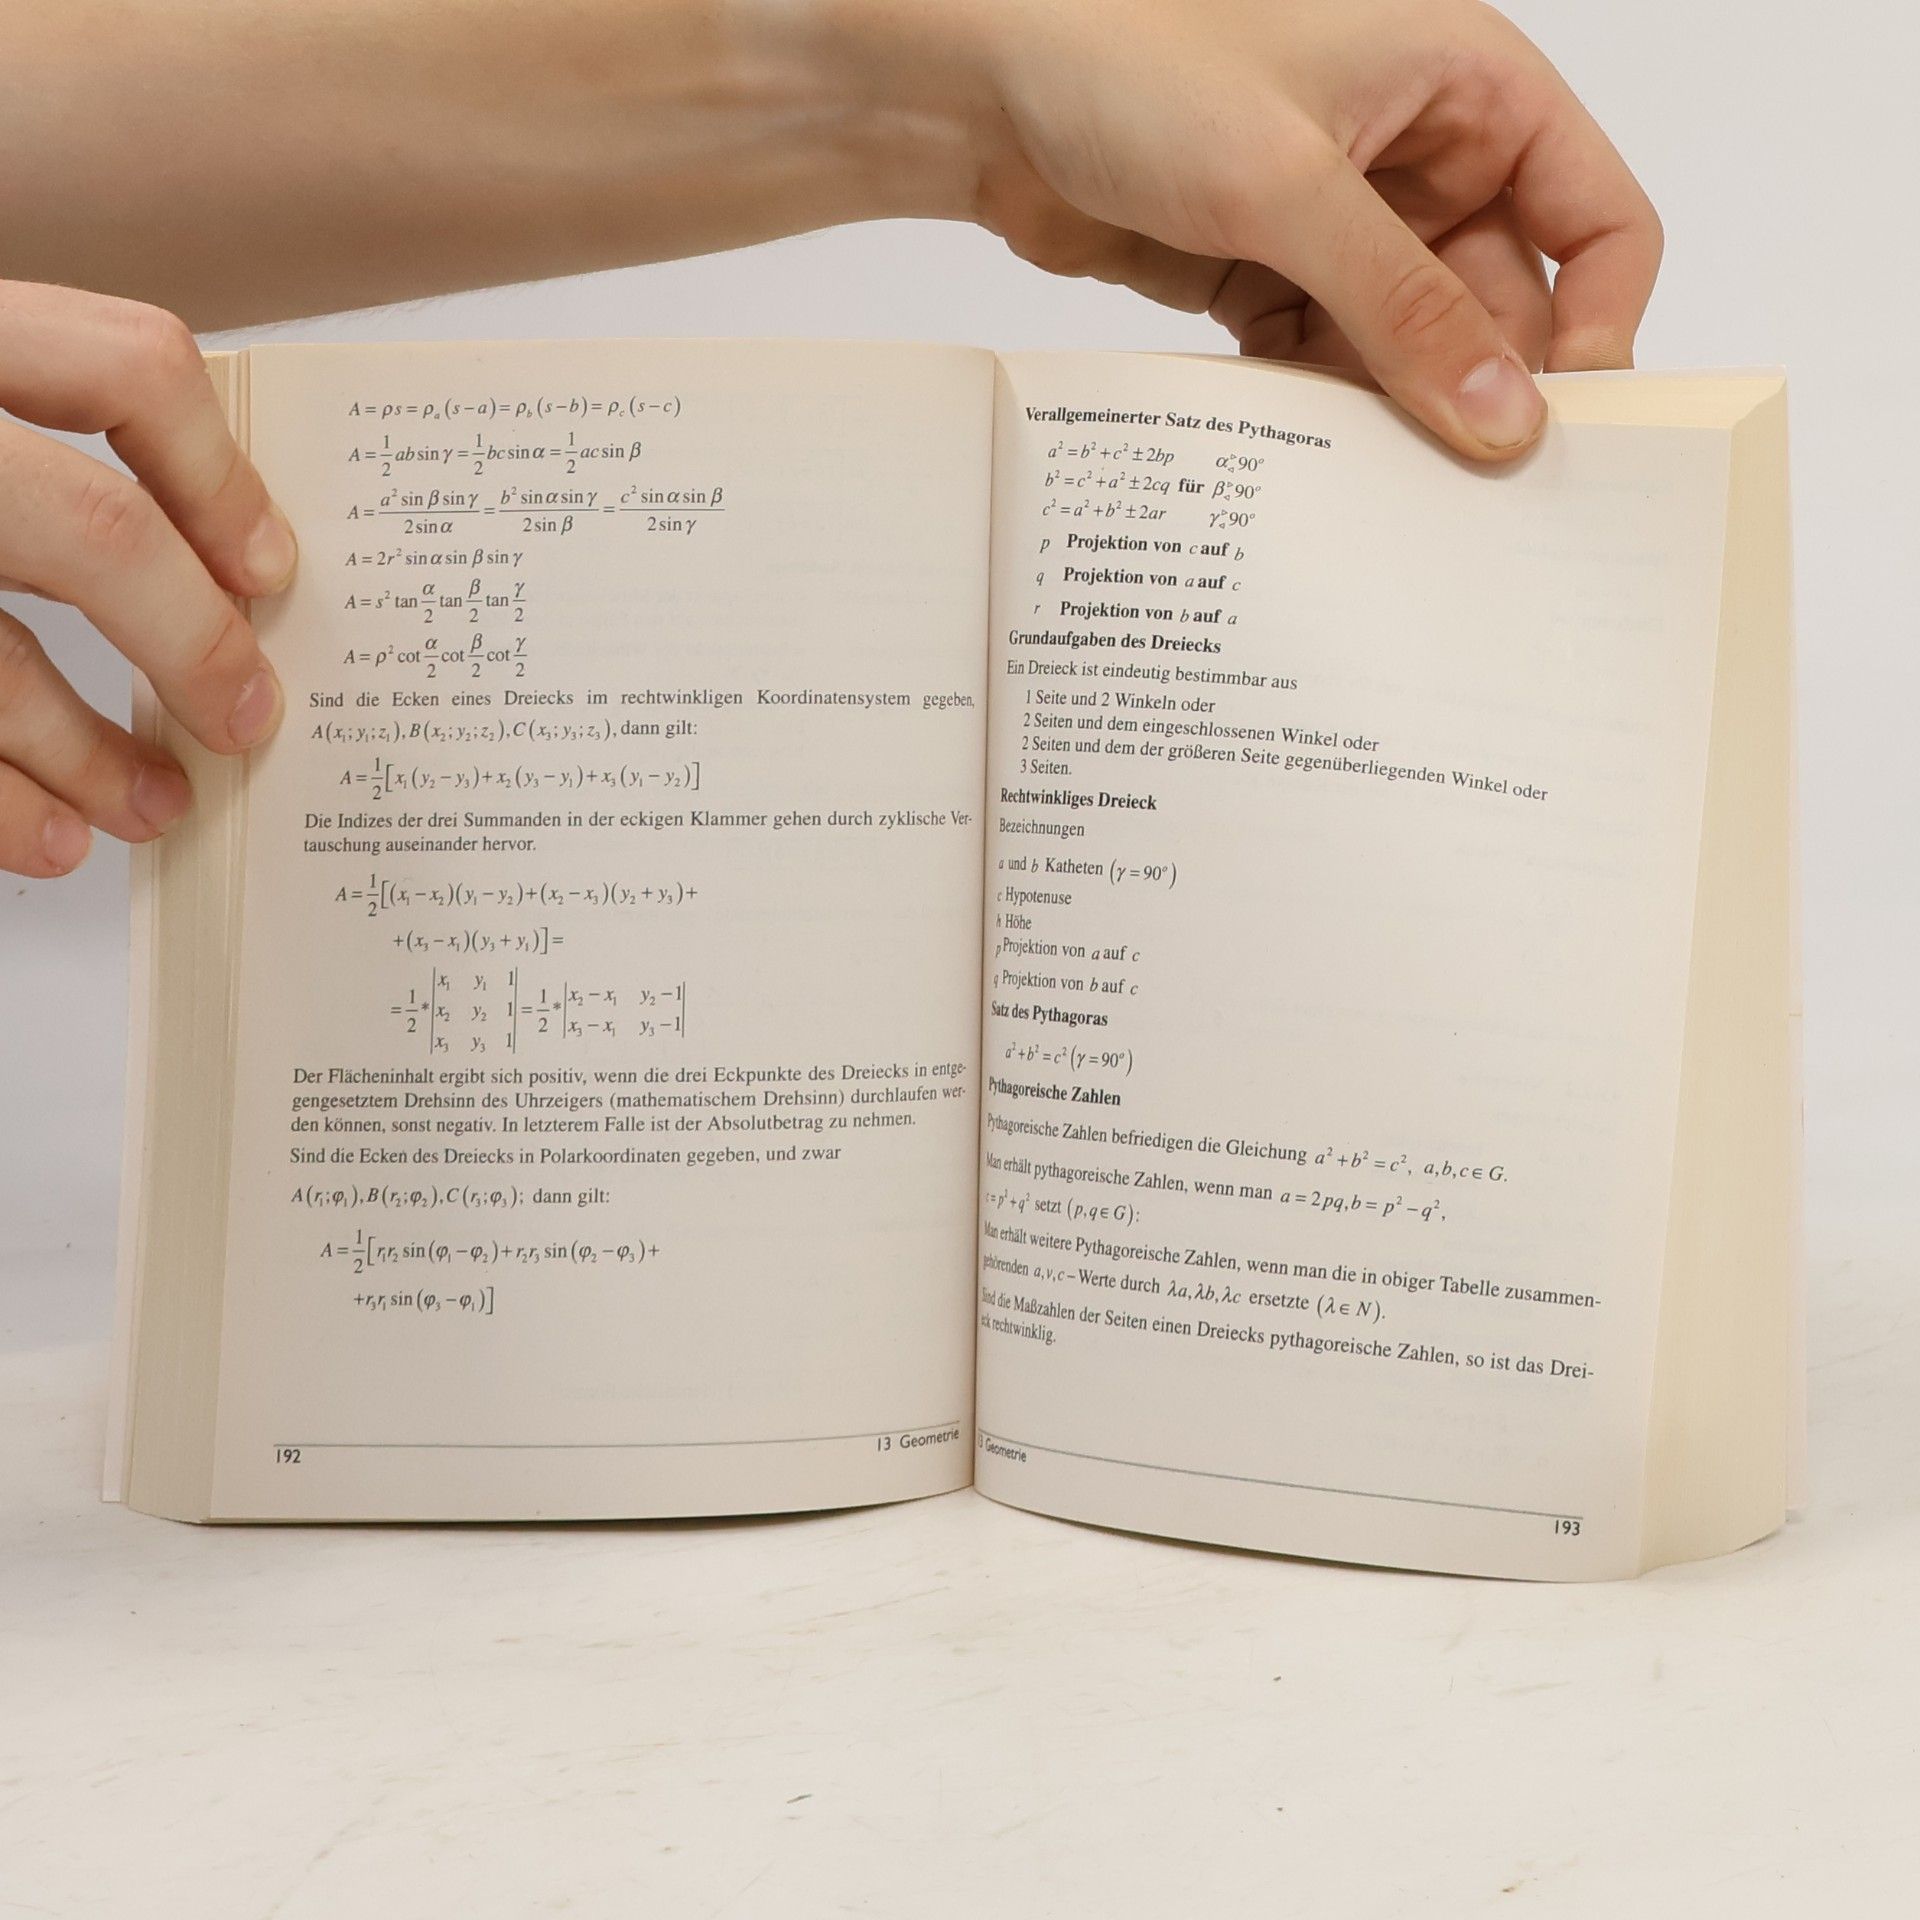 A = ρs = ρₐ(s−a) = ρ_b(s−b) = ρ_c(s−c)
A = 1/2 ab sin γ = 1/2 bc sin α = 1/2 ac sin β
A = a² sin β sin γ / 2 sin α = b² sin α sin γ / 2 sin β = c² sin α sin β / 2 sin γ
A = 2r² sin α sin β sin γ
A = s² tan α/2 tan β/2 tan γ/2
A = ρ² cot α/2 cot β/2 cot γ/2
Sind die Ecken eines Dreiecks im rechtwinkligen Koordinatensystem gegeben,
A(x₁; y₁; z₁), B(x₂; y₂; z₂), C(x₃; y₃; z₃), dann gilt:
A = 1/2 [x₁(y₂ − y₃) + x₂(y₃ − y₁) + x₃(y₁ − y₂)]
Die Indizes der drei Summanden in der eckigen Klammer gehen durch zyklische Ver-
tauschung auseinander hervor.
A = 1/2 [(x₁ − x₂)(y₁ − y₂) + (x₂ − x₃)(y₂ + y₃) +
+ (x₃ − x₁)(y₃ + y₁)] =
= 1/2 * |x₁ y₁ 1; x₂ y₂ 1; x₃ y₃ 1| = 1/2 * |x₂ − x₁ y₂ − 1; x₃ − x₁ y₃ − 1|
Der Flächeninhalt ergibt sich positiv, wenn die drei Eckpunkte des Dreiecks in entge-
gengesetztem Drehsinn des Uhrzeigers (mathematischem Drehsinn) durchlaufen wer-
den können, sonst negativ. In letzterem Falle ist der Absolutbetrag zu nehmen.
Sind die Ecken des Dreiecks in Polarkoordinaten gegeben, und zwar
A(r₁; φ₁), B(r₂; φ₂), C(r₃; φ₃); dann gilt:
A = 1/2 [r₁r₂ sin(φ₁ − φ₂) + r₂r₃ sin(φ₂ − φ₃) +
+ r₃r₁ sin(φ₃ − φ₁)]
192
13 Geometrie
Verallgemeinerter Satz des Pythagoras
a² = b² + c² ± 2bp α ⊳⊲ 90°
b² = c² + a² ± 2cq für β ⊳⊲ 90°
c² = a² + b² ± 2ar γ ⊳⊲ 90°
p Projektion von c auf b
q Projektion von a auf c
r Projektion von b auf a
Grundaufgaben des Dreiecks
Ein Dreieck ist eindeutig bestimmbar aus
1 Seite und 2 Winkeln oder
2 Seiten und dem eingeschlossenen Winkel oder
2 Seiten und dem der größeren Seite gegenüberliegenden Winkel oder
3 Seiten.
Rechtwinkliges Dreieck
Bezeichnungen
a und b Katheten (γ = 90°)
c Hypotenuse
h Höhe
p Projektion von a auf c
q Projektion von b auf c
Satz des Pythagoras
a² + b² = c² (γ = 90°)
Pythagoreische Zahlen
Pythagoreische Zahlen befriedigen die Gleichung a² + b² = c², a, b, c ∈ G.
Man erhält pythagoreische Zahlen, wenn man a = 2pq, b = p² − q²,
c = p² + q² setzt (p, q ∈ G):
Man erhält weitere Pythagoreische Zahlen, wenn man die in obiger Tabelle zusammen-
gehörenden a, v, c – Werte durch λa, λb, λc ersetzte (λ ∈ N).
Sind die Maßzahlen der Seiten einen Dreiecks pythagoreische Zahlen, so ist das Drei-
eck rechtwinklig.
13 Geometrie
193